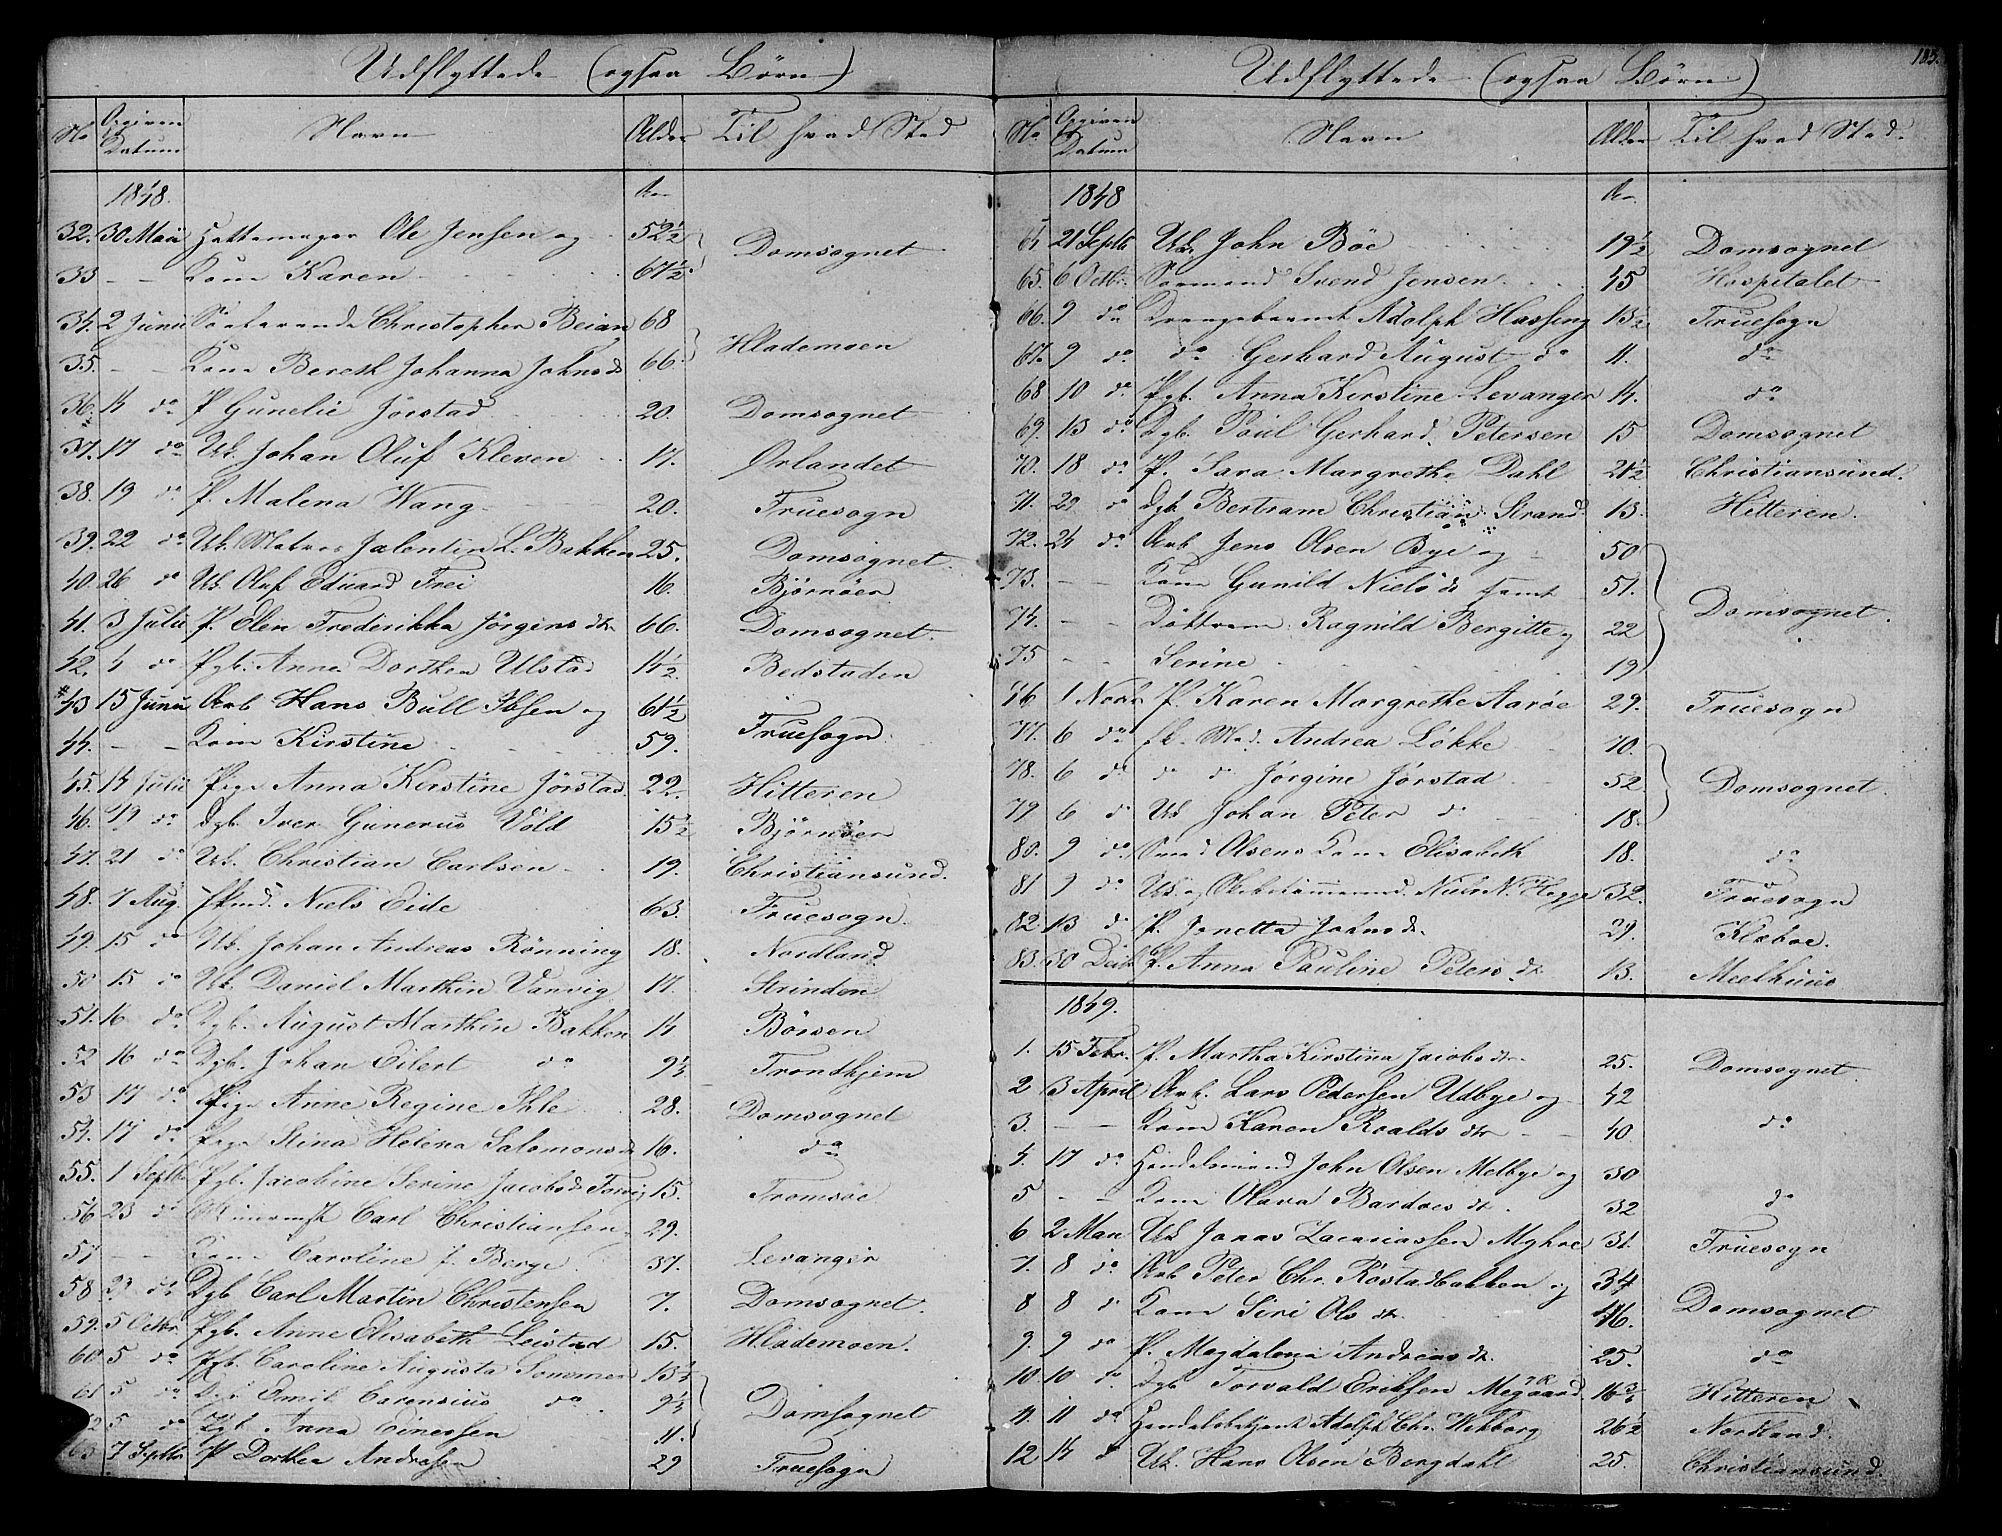 Udflyttede (ogsaa Børn)
No Opgiven Datum Navn Alder Til hvad Sted
1848. Aar
32. 30 Maii Hattemager Ole Jensen og 52 1/2 Domsognet
33 - - Kone Karen 67 1/2
34. 2 Junii Christopher Beian 68 Hlademoen
35. - - Kone Johanna Johnsd 66.
36. 14 do P Gunelie Jørstad 20. Domsognet
37. 17 do Uk. Johan Oluf Kleven 17. Ørlandet
38. 19 do P. Malena Wang 20. Fruesogn
39. 22 do Uk. L. Bakken 25. Domsognet.
40. 26 do Uk Oluf Eduard Frei 16. Bjørnøer
41. 3 Julii P. Elen Frederikka Jörgensdtr 66. Domsognet.
42. 4 do Pgb. Anne Dorthea Ulstad 14 1/2 Bedstaden
43 15 Junii Arb Hans Bull Ibsen og 61 1/2 Fruesogn
44. - - Kone Kirstine 59.
45. 14 Julii Pige Anna Kirstine Jörstad 22. Hitteren
46. 19 do Dgb. Iver Gunerus Vold 15 1/2 Bjørnøer
47. 21 do Uk. Christian Carlsen 19. Christiansund.
48. 7 Aug. Niels Eide 63. Fruesogn.
49. 15 do Uk. Johan Andreas Rönning 18. Nordland
50 15 do Uk. Daniel Marthin Vanvig 17. Strinden
51. 16 do Dgb. August Marthin Bakken 14 Börsen
52 16 do Dgb. Johan Eilert do 9 1/2 Trondhjem
53 17 do Pige Anne Regine Ihle 28. Domsognet
54. 17 do Pige Stina Helena Salomonsd 16. do
55. 1 Septbr Pgb. Jacobine Serine Jacobsd Torvig 15. Tromsöe
56 23 do Carl Christiansen 29. Levanger
57 - - Kone Caroline f. Berge 37.
58 23 do Dgb Carl Martin Christensen 7. Domsognet.
59. 5 Octbr. Pgb. Anne Elisabeth Leistad 15. Hlademoen.
60 5 do Pgb. Caroline Augusta Sommer 13 1/2 Domsognet
61 5 do Dgb Emil do 9 1/2
62 5 do Pgb. Anna Einersen 11.
63 7 Septbr P Dorthea Andrasen 29 Fruesogn
185.
Udflyttede (ogsaa Børn)
No Opgiven Datum Navn Alder Til hvad Sted.
1848 Aar
21 Septb Uk. John Böe 19 1/2 Domsognet
65. 6 Octbr. Svend Jensen 45 Hospitalet
66. 9 do Drengebarnet Adolph Hassing 13 1/2 Fruesogn
67. 9 do do Gerhard August do 11. do
68 10 do Pgb. Anna Kirstine Levanger 14. do
69. 13 do Dgb. Paul Gerhard Petersen 15 Domsognet
70. 18 do P. Sara Margrethe Dahl 21 1/2 Christiansund.
71. 22 do Dgb Bertram Christian Strand 13. Hitteren.
72. 24 do Arb Jens Olsen Bye og 50 Domsognet.
73. - - Kone Gunild Nielsd samt 51.
74. - - Döttrene Ragnild Bergitte og 22
75 - - Serine 19
76 1 Novbr P. Karen Margrethe Aaröe 29. Fruesogn
77. 6 do Mad. Andrea Lökke 70. Domsognet.
78. 6 do do do Jörgine Jörstad 52.
79 6 d Uk Johan Peter do 18.
80. 9 do Smed Olsens Kone Elisabeth 18. do
81 9 do Niels N. Hegge 32. Fruesogn
82 13 d P. Janetta Johnsdtr. 29. Klæboe.
83. 30 P. Anna Pauline Petersdtr. 13. Meelhuus
1849.
1. 15 Febr. P. Martha Kirstina Jacobsdtr. 25. Domsognet.
2 3 April Arb. Lars Pedersen Udbye og 42 do
3. - - Kone Karen Roaldsdtr 40.
4. 17 do Handelsmand John Olsen Melbye og 30 do
5 - - Kone Olava Bardoes dtr. 32
6 2 Maii Uk Jonas Zacariassen Myhre 31. Fruesogn
7. 8 do Arb Peter Chr. Röstadbakken og 34 Domsognet
8 8 d Kone Siri Olsdtr. 46.
9. 9 do P. Magdalena Andreasdtr. 25. do
10 10 do Dgb Torvald Eriksen Megaard 16 Hitteren
11. 11 do Handelsbetjent Adolph Chr. Wikborg 26 1/2 Nordland
12 14 d Uk. Hans Olsen Bergdahl 25. Christiansund.